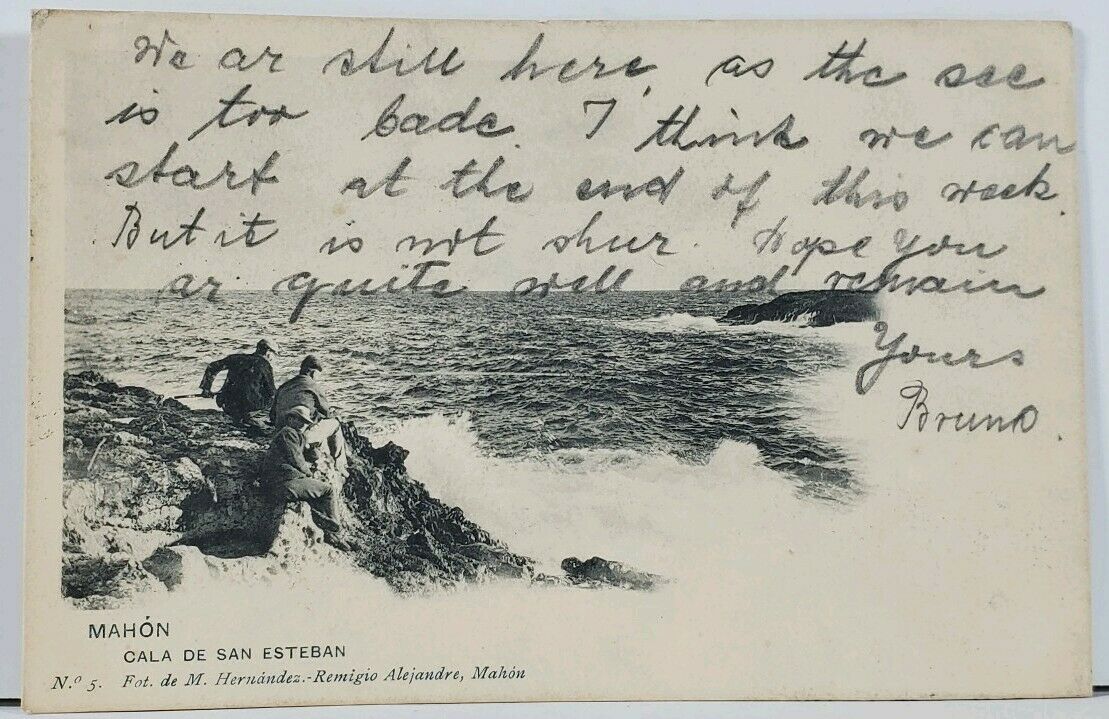 We ar still here, as the see
is too bade. I think we can
start at the end of this week.
But it is not shur. Hope you
ar quite well and remain
Yours
Bruno.
MAHÓN
CALA DE SAN ESTEBAN
N.º 5. Fot. de M. Hernández.-Remigio Alejandre, Mahón